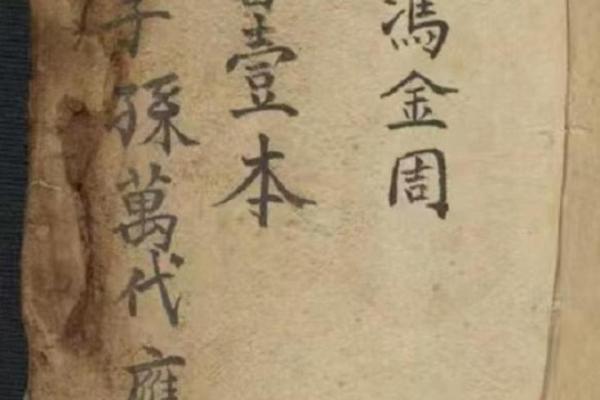 馮金周
壹本
子孫萬代應